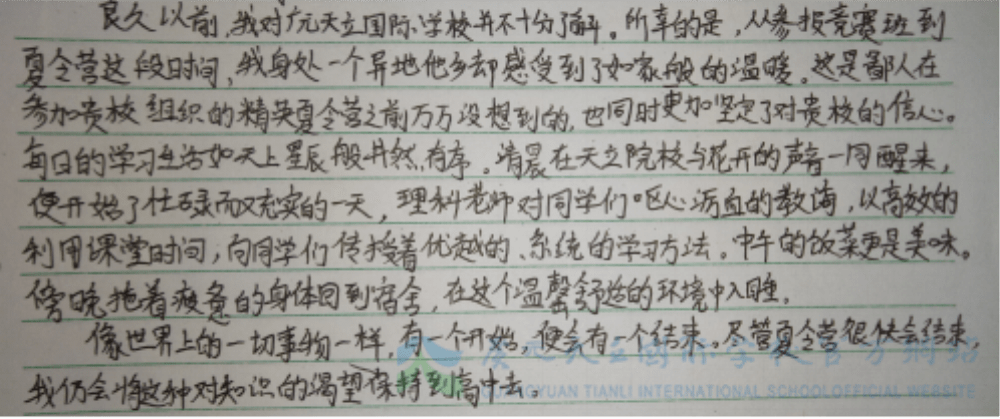 良久以前,我对广元天立国际学校并不十分了解。所幸的是,从参报竞赛班到
夏令营这段时间,我身处一个异地他乡却感受到了如家般的温暖。这是鄙人在
参加贵校组织的精英夏令营之前万万没想到的,也同时更加坚定了对贵校的信心。
每日的学习生活如天上星辰般井然有序。清晨在天立院校与花开的声音一同醒来,
便开始了忙碌而又充实的一天,理科老师对同学们呕心沥血的教诲,以高效的
利用课堂时间,向同学们传授着优越的、系统的学习方法。中午的饭菜更是美味。
傍晚拖着疲惫的身体回到宿舍,在这个温馨舒适的环境中入睡。
像世界上的一切事物一样,有一个开始,便会有一个结束。尽管夏令营很快会结束,
我仍会将这种对知识的渴望保持到高中去。
广元天立国际学校官方网站
GUANGYUAN TIANLI INTERNATIONAL SCHOOL OFFICIAL WEBSITE